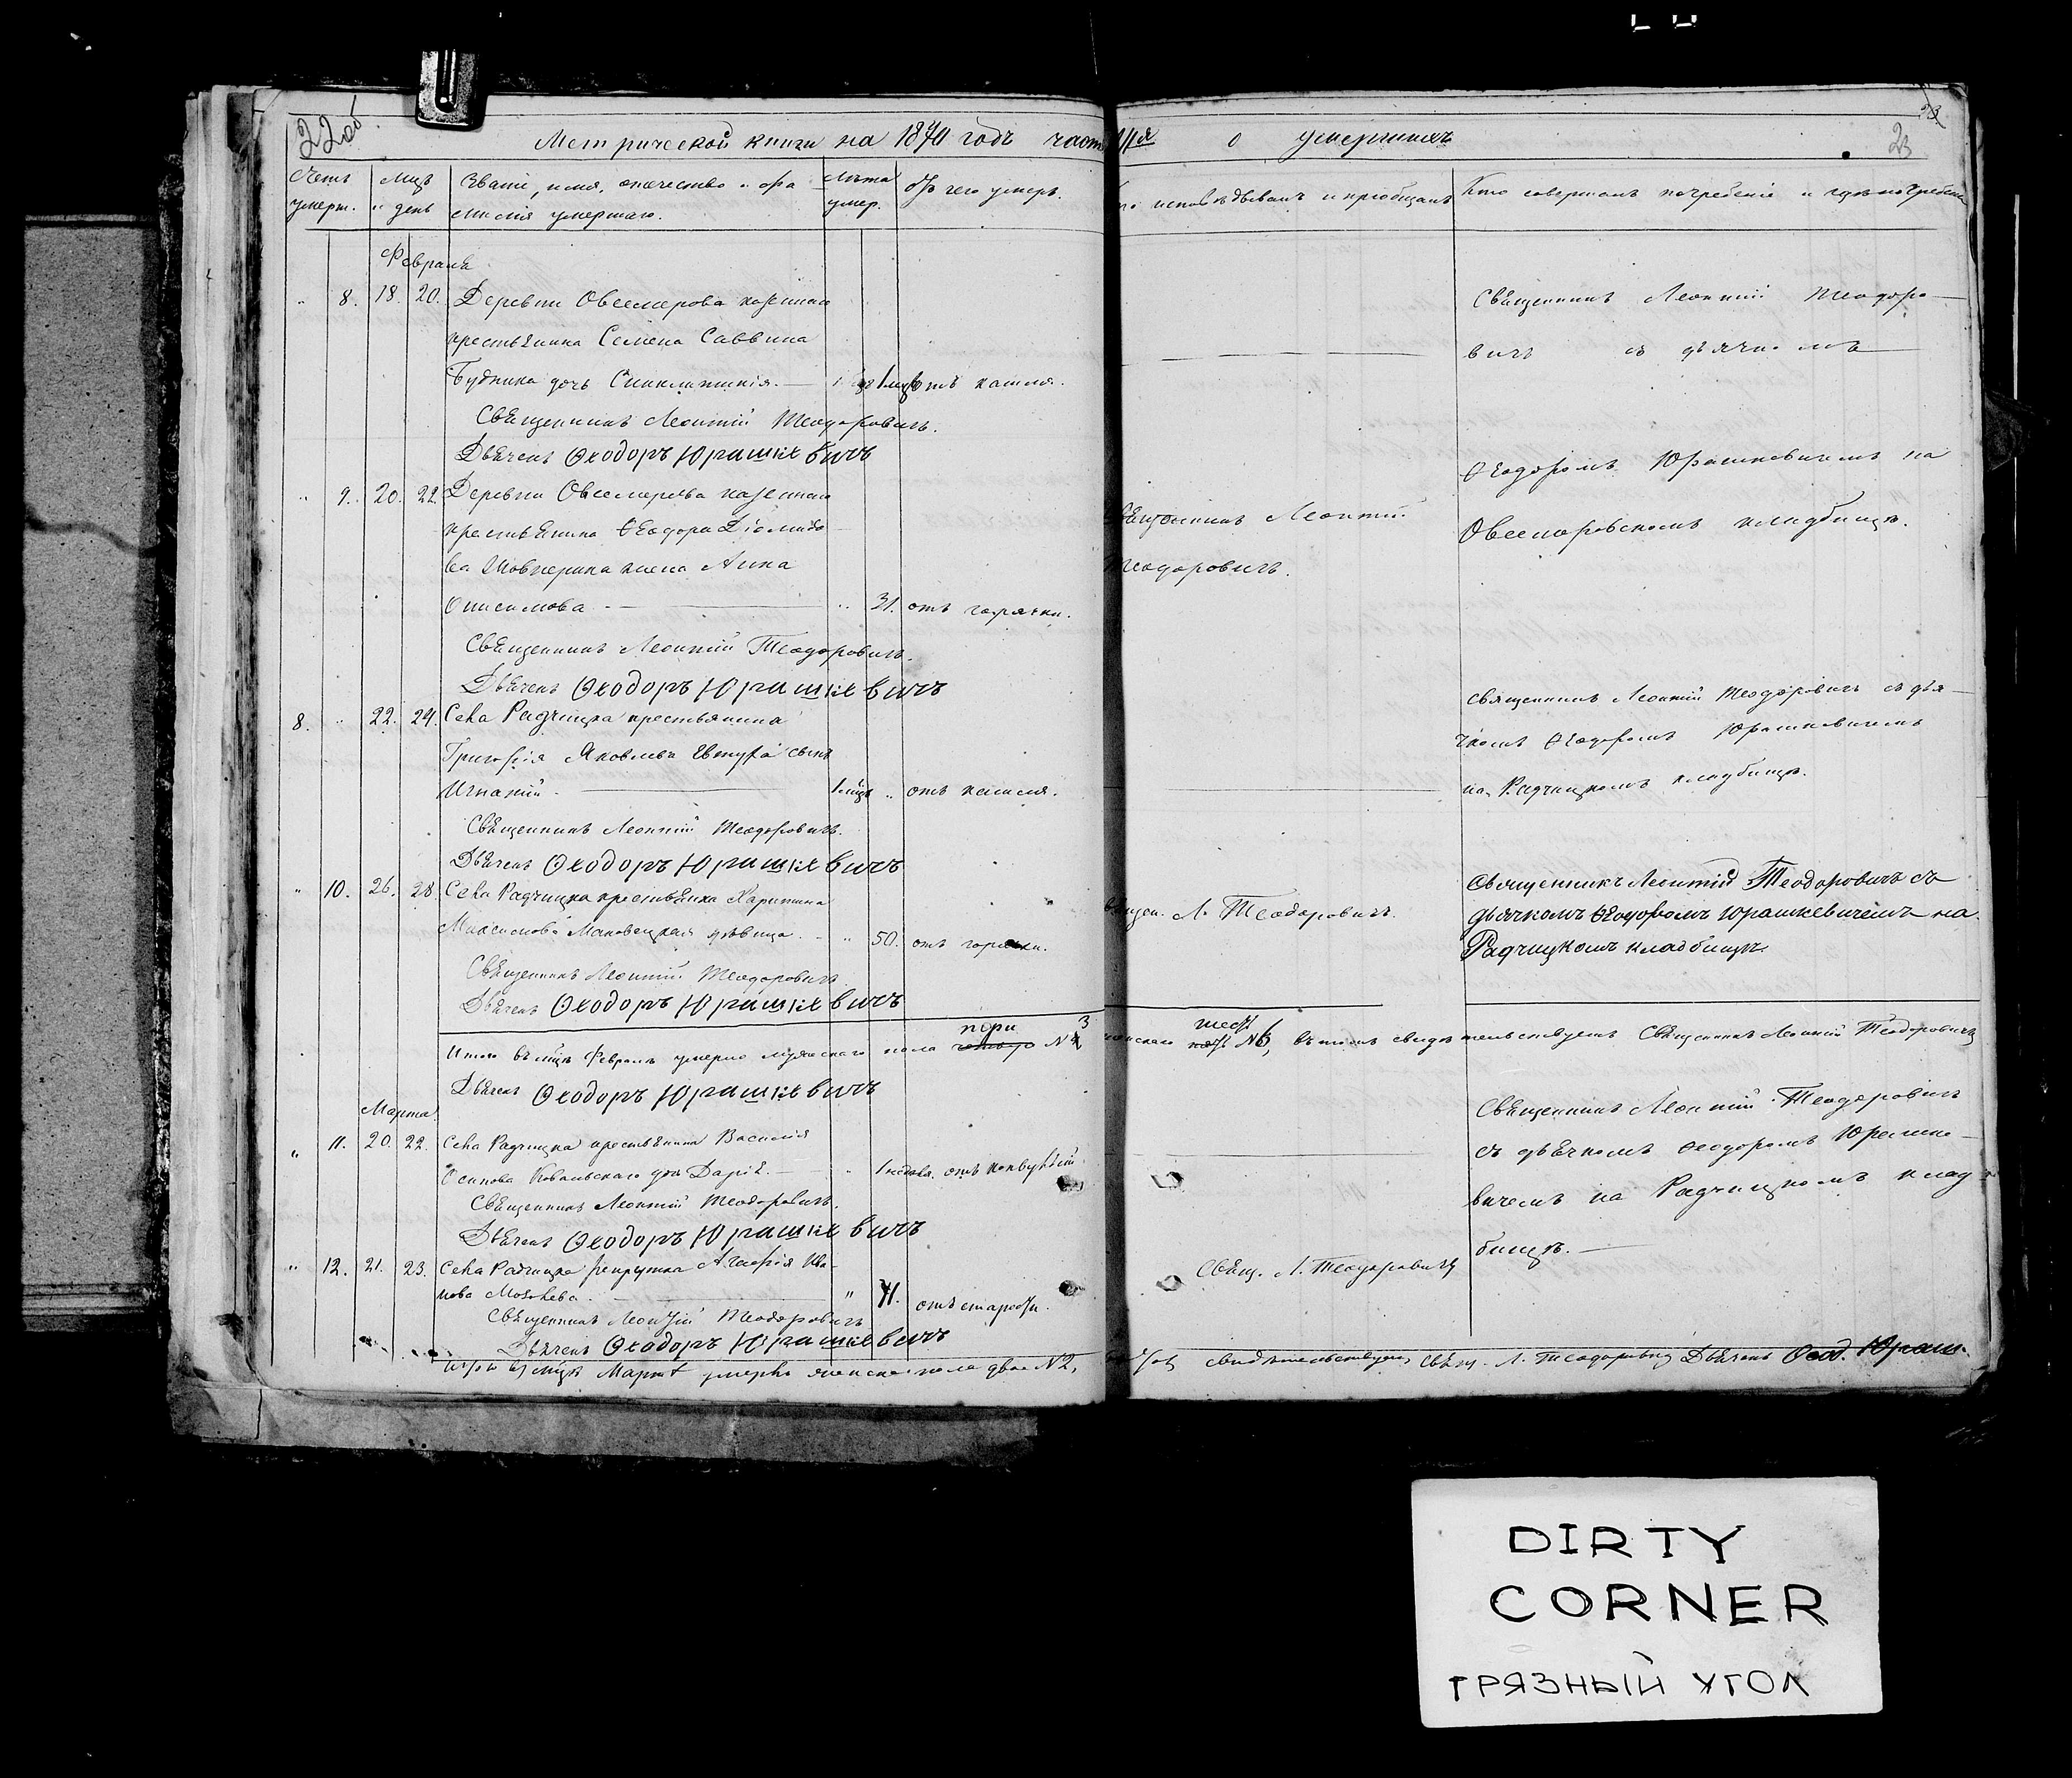 22 об
23
Метрической книги на 1870 годъ часть IIIя о умершихъ
Счетъ умерш.
Мцъ и день
Званіе, имя, отчество и фамилія умершаго.
Лѣта умер.
Отъ чего умеръ.
исповѣдывалъ и пріобщалъ
Кто совершалъ погребеніе и гдѣ погребены
Февраль
" 8. 18. 20. Деревни Овсемирова казеннаго
крестьянина Семена Саввина
Будника дочь
отъ кашля.
Священникъ Леонтій Теодоровичъ.
Дьячекъ Ѳеодоръ Юрашкевичъ
Священникъ Леонтій Теодоро-
вичъ съ дьячкомъ
Ѳеодоромъ Юрашкевичемъ на
Овсемировскомъ кладбищѣ.
" 9. 20. 22. Деревни Овсемирова казеннаго
крестьянина Ѳеодора Діомидо-
ва жена Анна
Онисимова " 31. отъ горячки.
Священникъ Леонтій
Теодоровичъ.
Священникъ Леонтій Теодоровичъ.
Дьячекъ Ѳеодоръ Юрашкевичъ
8. " 22. 24. Села Радчицка крестьянина
Григорія Яковлева сынъ
Игнатій 1 мцъ " отъ кашля.
Священникъ Леонтій Теодоровичъ.
Дьячекъ Ѳеодоръ Юрашкевичъ
Священникъ Леонтій Теодоровичъ съ дья-
чкомъ Ѳеодоромъ Юрашкевичемъ
на Радчицкомъ кладбищѣ.
" 10. 26. 28. Села Радчицка крестьянка Харитина
Максимова Маковецкая дѣвица " 50. отъ горячки.
Л. Теодоровичъ.
Священникъ Леонтій Теодоровичъ
Дьячекъ Ѳеодоръ Юрашкевичъ
Священникъ Леонтій Теодоровичъ съ
дьячкомъ Ѳеодоромъ Юрашкевичемъ на
Радчицкомъ кладбищѣ.
Итого въ мцѣ Февралѣ умерло мужескаго пола три № 3 женскаго шесть № 6, въ томъ свидѣтельствуетъ Священникъ Леонтій Теодоровичъ
Дьячекъ Ѳеодоръ Юрашкевичъ
Марта
" 11. 20. 22. Села Радчицка крестьянина Василія
Осипова Ковальскаго дочь Дарія. " отъ конвульсій
Священникъ Леонтій Теодоровичъ.
Дьячекъ Ѳеодоръ Юрашкевичъ
Священникъ Леонтій Теодоровичъ
съ дьячкомъ Ѳеодоромъ Юрашке-
вичемъ на Радчицкомъ клад-
бищѣ.
" 12. 21. 23. Села Радчицка рекрутка Агафія Ива-
нова " 71. отъ старости.
Свящ. Л. Теодоровичъ
Священникъ Леонтій Теодоровичъ
Дьячекъ Ѳеодоръ Юрашкевичъ
Итого въ мцѣ Мартѣ умерло женскаго пола двое № 2, свидѣтельствуетъ Свящ. Л. Теодоровичъ Дьячекъ Ѳеод. Юраш.
DIRTY
CORNER
ГРЯЗНЫЙ УГОЛ